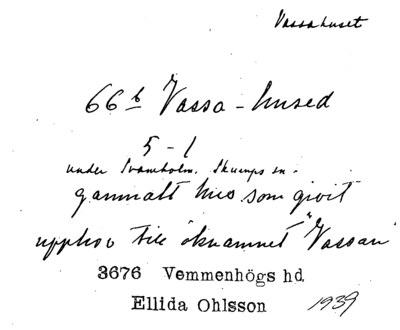 Vassahuset
66 b Vassa-hused
5-1
under Svaneholm, Skurups sn.
gammalt hus som givit
upphov till öknamnet "Vassan"
3676 Vemmenhögs hd.
Ellida Ohlsson 1939